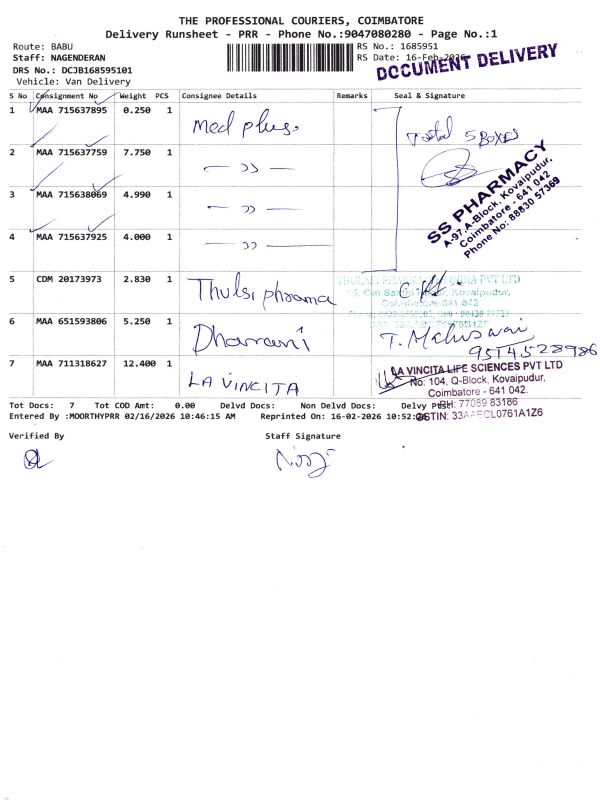 THE PROFESSIONAL COURIERS, COIMBATORE
Delivery Runsheet - PRR - Phone No.:9047080280 - Page No.:1
Route: BABU
RS No.: 1685951
Staff: NAGENDERAN
RS Date: 16-Feb-2026
DRS No.: DCJB168595101
DOCUMENT DELIVERY
Vehicle: Van Delivery
S No Consignment No Weight PCS Consignee Details Remarks Seal & Signature
1 MAA 715637895 0.250 1 Med plus.
Total 5 Boxes
2 MAA 715637759 7.750 1 — ,, —
3 MAA 715638069 4.990 1 — ,, —
4 MAA 715637925 4.000 1 — ,, —
SS PHARMACY
A-97, A-Block, Kovaipudur,
Coimbatore - 641 042
Phone No: 88830 57369
5 CDM 20173973 2.830 1 Thulsi pharama
INDIA PVT LTD
Kovaipudur,
641 042
6 MAA 651593806 5.250 1 Dharani
9514528986
7 MAA 711318627 12.400 1 LA VINCITA
LA VINCITA LIFE SCIENCES PVT LTD
No: 104, Q-Block, Kovaipudur,
Coimbatore - 641 042.
PH: 77089 83186
GSTIN: 33AAECL0761A1Z6
Tot Docs: 7 Tot COD Amt: 0.00 Delvd Docs: Non Delvd Docs: Delvy
Entered By :MOORTHYPRR 02/16/2026 10:46:15 AM Reprinted On: 16-02-2026
Verified By Staff Signature